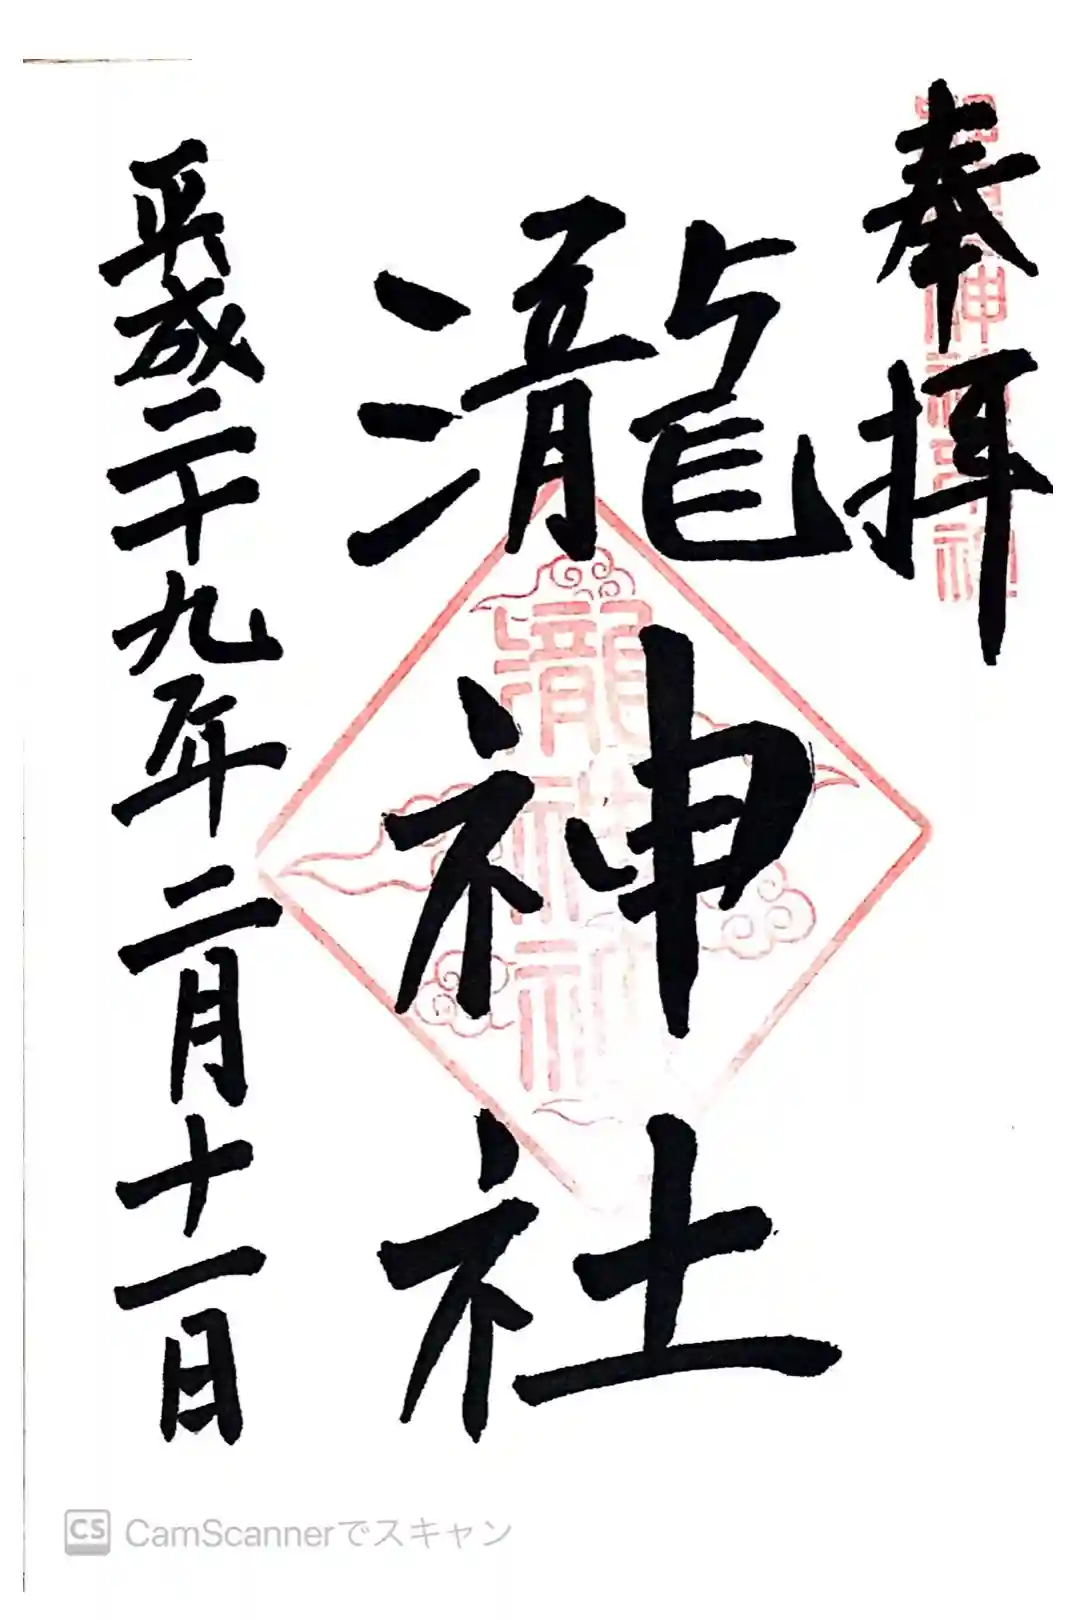 奉拝
瀧神社
瀧神社
平成二十九年二月十一日
CS CamScannerでスキャン